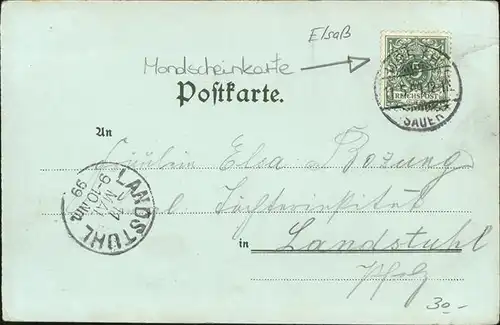 Elsaß
Mondscheinkarte
REICHSPOST
(SAUER)
Postkarte.
An
Fräulein Elsa Bozung
LANDSTUHL
11
MAI
9-10 Nm.
99
in Landstuhl
Pfalz
30.-